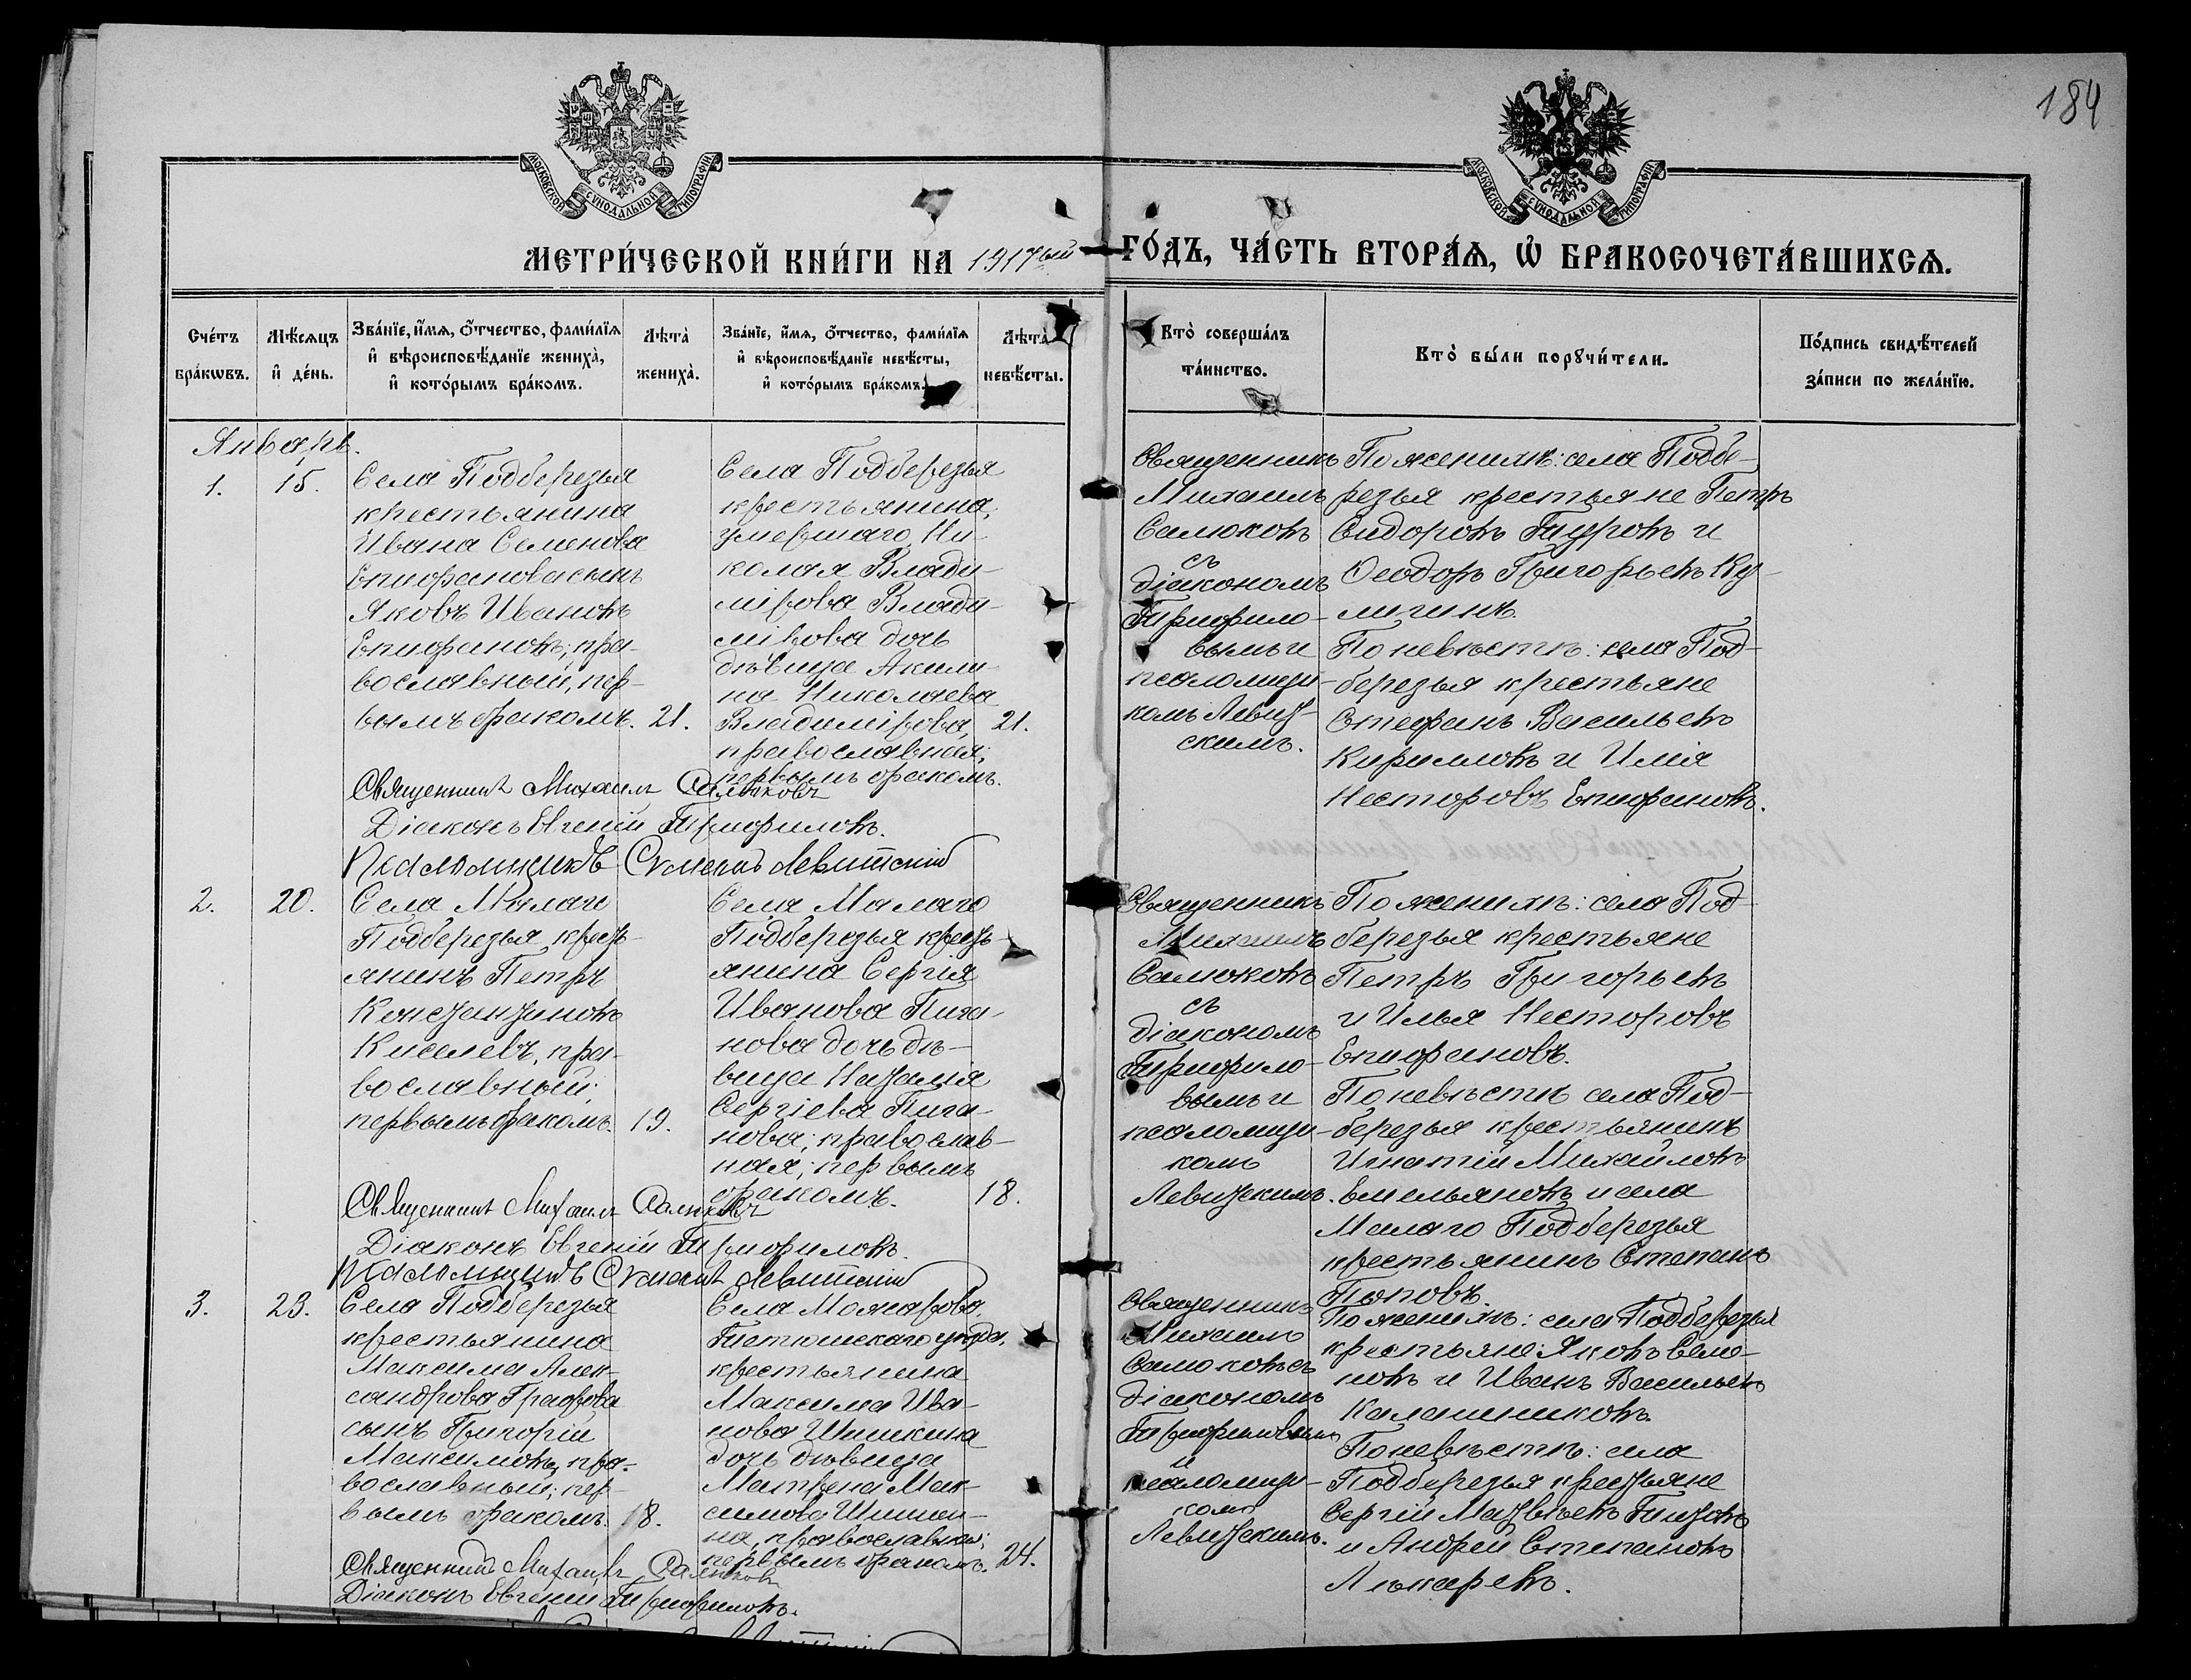 184
МОСКОВСКОЙ СѴНОДАЛЬНОЙ ТИПОГРАФІИ
МОСКОВСКОЙ СѴНОДАЛЬНОЙ ТИПОГРАФІИ
МЕТРИ́ЧЕСКОЙ КНИ́ГИ НА 1917ый ГО́ДЪ, ЧА́СТЬ ВТОРА́Ѧ, Ѽ БРАКОСОЧЕТА́ВШИХСѦ.
Сче́тъ
бра́кѡвъ.
Мѣ́сѧцъ
и҆ де́нь.
Зва́нїе, и҆́мѧ, ѻ҆́тчество, фами́лїѧ
и҆ вѣроисповѣ́данїе жениха̀,
и҆ кото́рымъ бра́комъ.
Лѣта̀
жениха̀.
Зва́нїе, и҆́мѧ, ѻ҆́тчество, фами́лїѧ
и҆ вѣроисповѣ́данїе невѣ́сты,
и҆ кото́рымъ бра́комъ.
Лѣта̀
невѣ́сты.
Кто̀ соверша́лъ
та́инство.
Кто̀ бы́ли порꙋчи́тели.
По́дпись свидѣ́телей
за́писи по жела́нїю.
Январь.
1.
15.
Села Подберезья
крестьянина
Ивана Семенова
Епифанова сынъ
Яковъ Ивановъ
Епифановъ; пра-
вославный, пер-
вымъ бракомъ.
21.
Села Подберезья
крестьянина,
умершаго Ни-
колая Влади-
мірова Влади-
мірова дочь
дѣвица Акили-
на Николаева
Владимірова,
православная;
первымъ бракомъ.
21.
Священникъ
Михаилъ
Салюковъ
съ
діакономъ
Трифило-
вымъ и
псаломщи-
комъ Левит-
скимъ.
По женихѣ: села Подбе-
резья крестьяне Петръ
Сидоровъ Титровъ и
Ѳеодоръ Григорьевъ Ку-
лигинъ.
По невѣстѣ: села Под-
березья крестьяне
Стефанъ Васильевъ
Кирилловъ и Илія
Несторовъ Епифановъ.
Священникъ Михаилъ Салюковъ
Діаконъ Евгеній Трифиловъ.
Псаломщикъ Симеонъ Левитскій
2.
20.
Села Малаго
Подберезья крест-
янинъ Петръ
Константиновъ
Киселевъ, пра-
вославный;
первымъ бракомъ.
19.
Села Малаго
Подберезья крест-
янина Сергія
Иванова Пига-
нова дочь дѣ-
вица Наталія
Сергіева Пига-
нова; православ-
ная; первымъ
бракомъ.
18.
Священникъ
Михаилъ
Салюковъ
съ
діакономъ
Трифило-
вымъ и
псаломщи-
комъ
Левитскимъ.
По женихѣ: села Под-
березья крестьяне
Петръ Григорьевъ
и Илья Несторовъ
Епифановъ.
По невѣстѣ села Под-
березья крестьянинъ
Игнатій Михайловъ
Емельяновъ и села
Малаго Подберезья
крестьянинъ Степанъ
Поповъ.
Священникъ Михаилъ Салюковъ
Діаконъ Евгеній Трифиловъ.
Псаломщикъ Симеонъ Левитскій
3.
23.
Села Подберезья
крестьянина
Максима Алек-
сандрова Графова
сынъ Григорій
Максимовъ, пра-
вославный; пер-
вымъ бракомъ.
18.
Села Можарова
Тетюшскаго уѣзда,
крестьянина
Максима Ива-
нова Шишкина
дочь дѣвица
Матрена Мак-
симова Шишки-
на, православная;
первымъ бракомъ.
24.
Священникъ
Михаилъ
Салюковъ съ
діакономъ
Трифиловымъ
и
псаломщи-
комъ
Левитскимъ.
По женихѣ: села Подберезья
крестьяне: Яковъ Семе-
новъ и Иванъ Васильевъ
Калашниковъ.
По невѣстѣ: села
Подберезья крестьяне
Сергій Матвѣевъ Титовъ
и Андрей Степановъ
Лѣкаревъ.
Священникъ Михаилъ Салюковъ
Діаконъ Евгеній Трифиловъ.